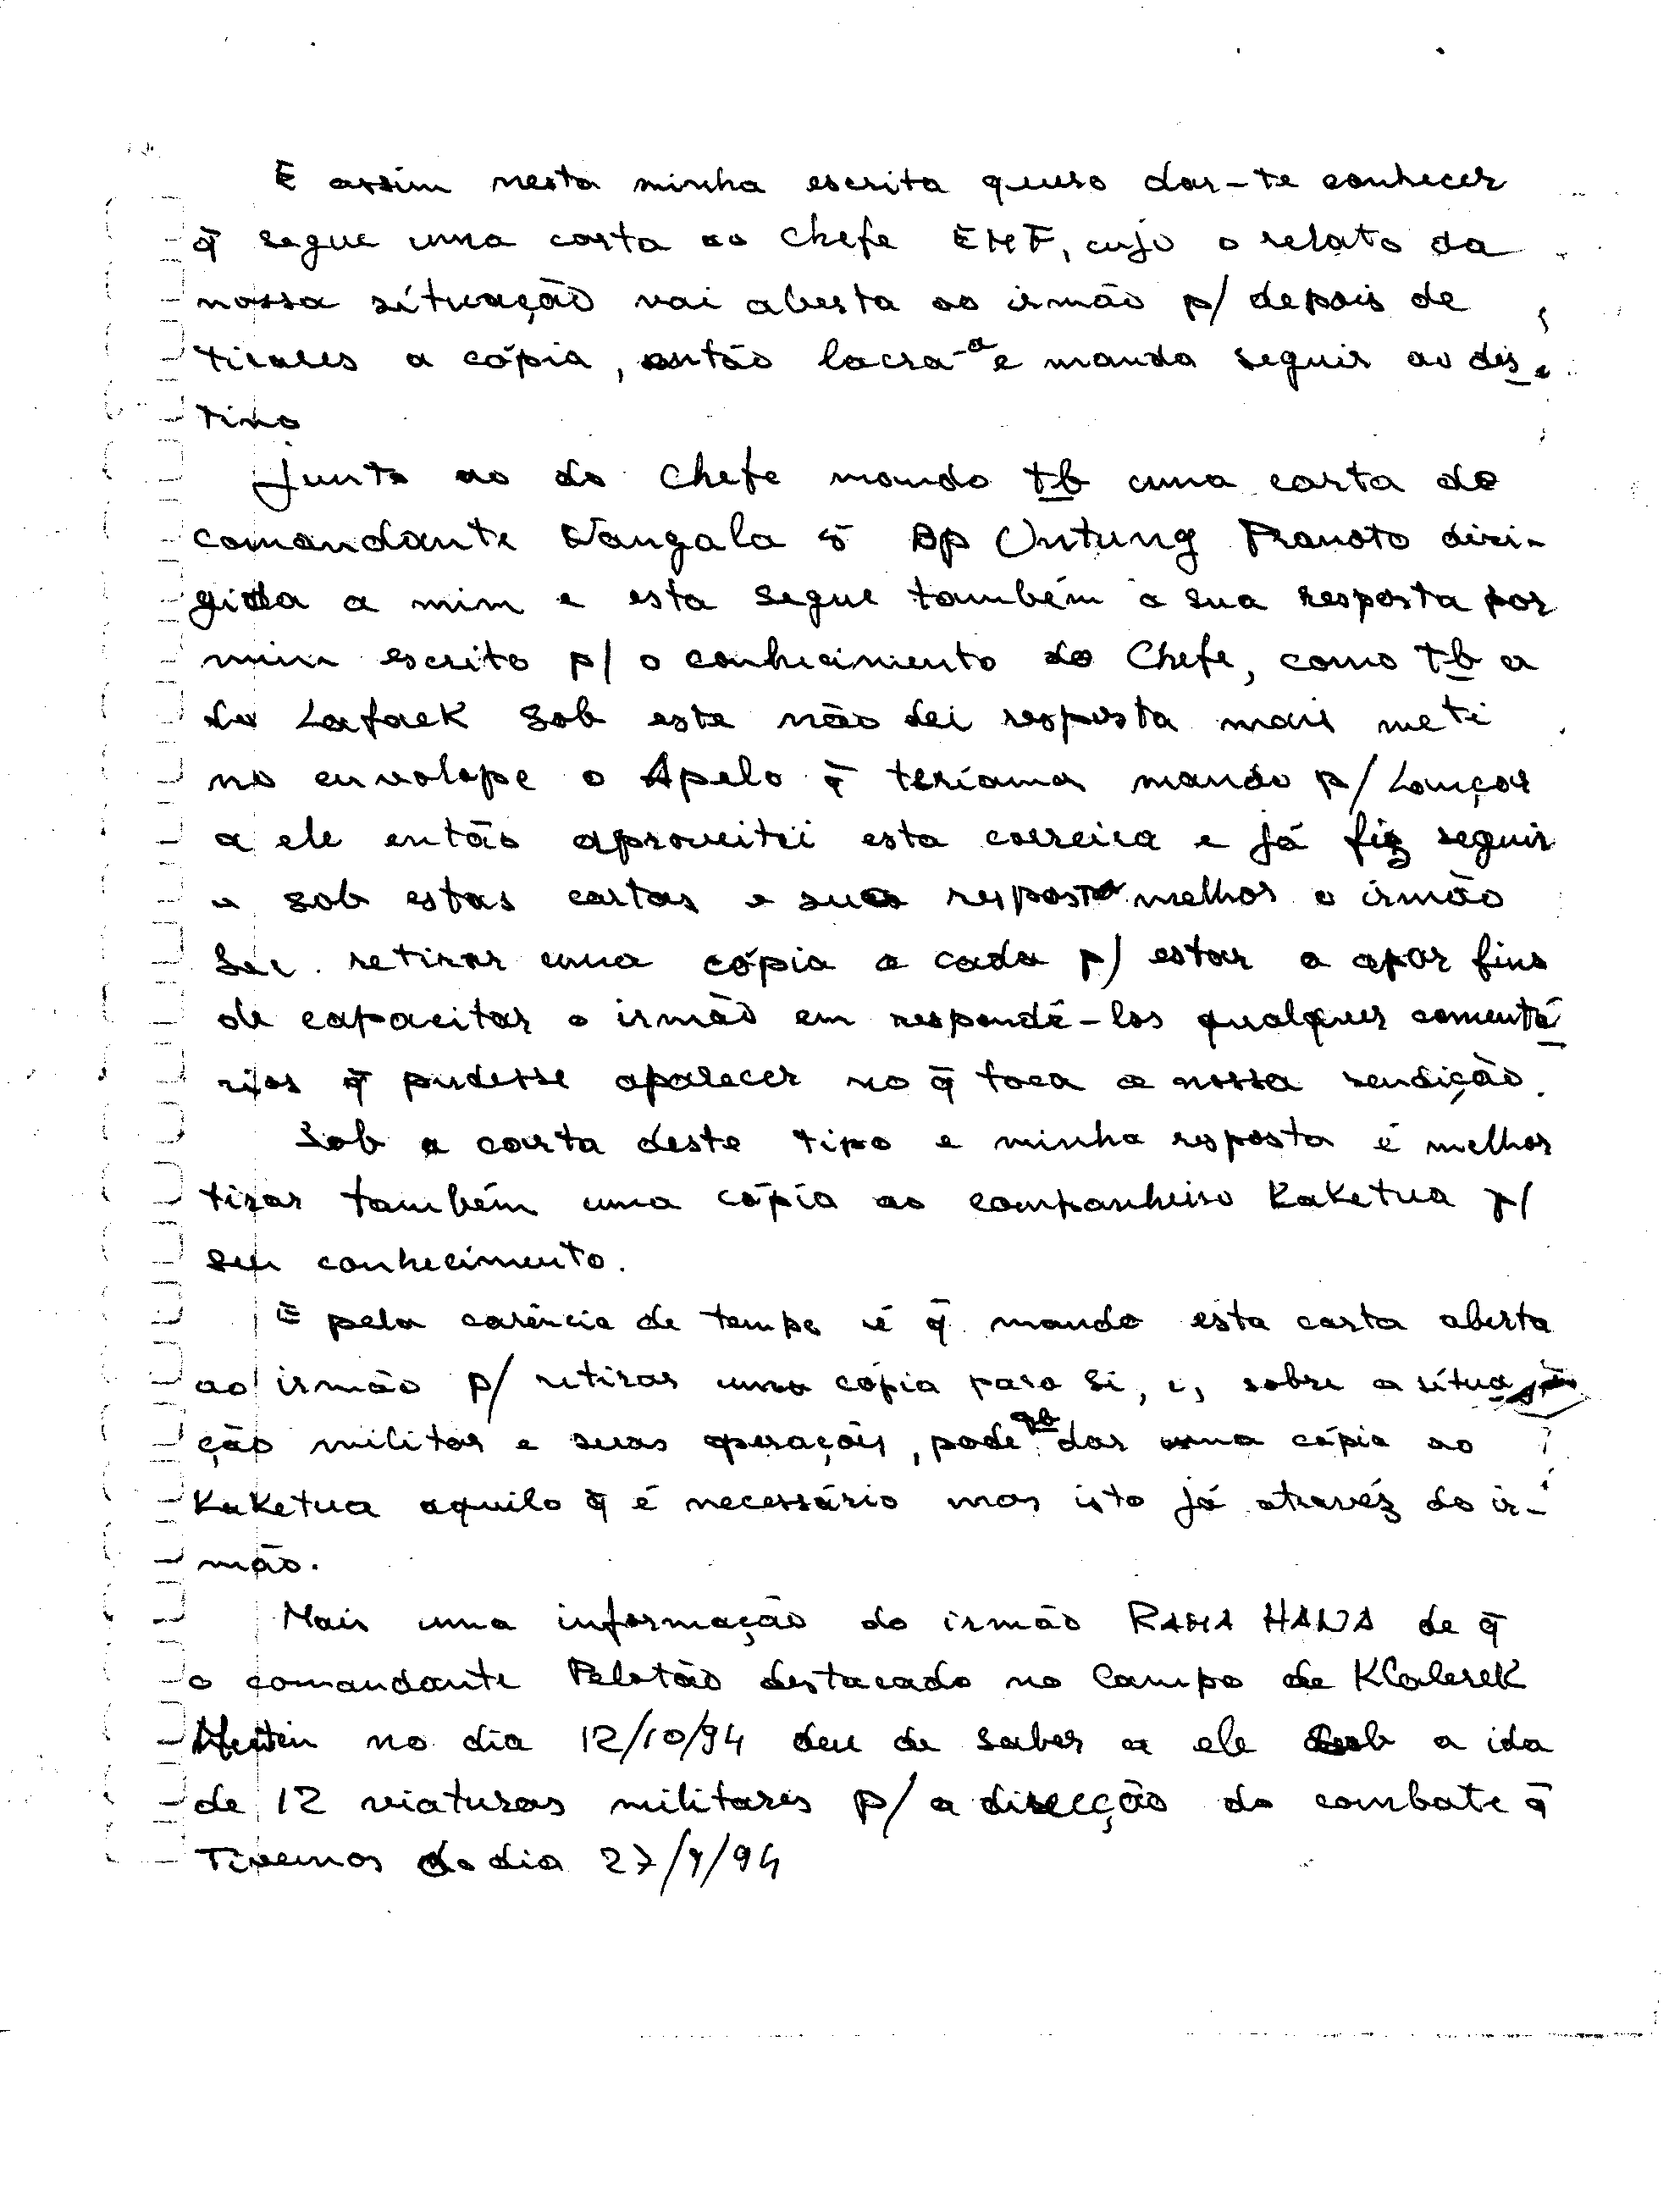 E assim nesta minha escrita quero dar-te conhecer
q̄ segue uma carta ao Chefe EMF, cujo o relato da
nossa situação vai aberta ao irmão p/ depois de
tirares a cópia, então lacra-a e manda seguir ao des-
tino
Junto ao do Chefe mando tb uma carta do
comandante Nangala 5 AP Untung Pranoto diri-
gida a mim e esta segue também a sua resposta por
mim escrito p/ o conhecimento do Chefe, como tb a
do Lafaek sob este não dei resposta mais meti
no envolope o Apelo q̄ teríamos mando p/ Lançar
a ele então aproveitei esta correira e já fiz seguir
e sob estas cartas e sua resposta melhor o irmão
Sec. retirar uma cópia a cada p/ estar a apar fins
de capacitar o irmão em respondê-los qualquer comentá
rios q̄ pudesse aparecer no q̄ toca a nossa rendição.
Sob a carta deste tipo e minha resposta é melhor
tirar também uma cópia ao companheiro Kaketua p/
seu conhecimento.
E pela carência de tempo é q̄ mando esta carta aberta
ao irmão p/ retirar uma cópia para si, e, sobre a situa
ção militar e suas operações, pode tb dar uma cópia ao
Kaketua aquilo q̄ é necessário mas isto já através do ir-
mão.
Mais uma informação do irmão RAMA HANA de q̄
o comandante Pelotão destacado no Campo de Klalerek
Mutin no dia 12/10/94 deu de saber a ele sob a ida
de 12 viaturas militares p/ a direcção do combate q̄
Tivemos do dia 27/9/94